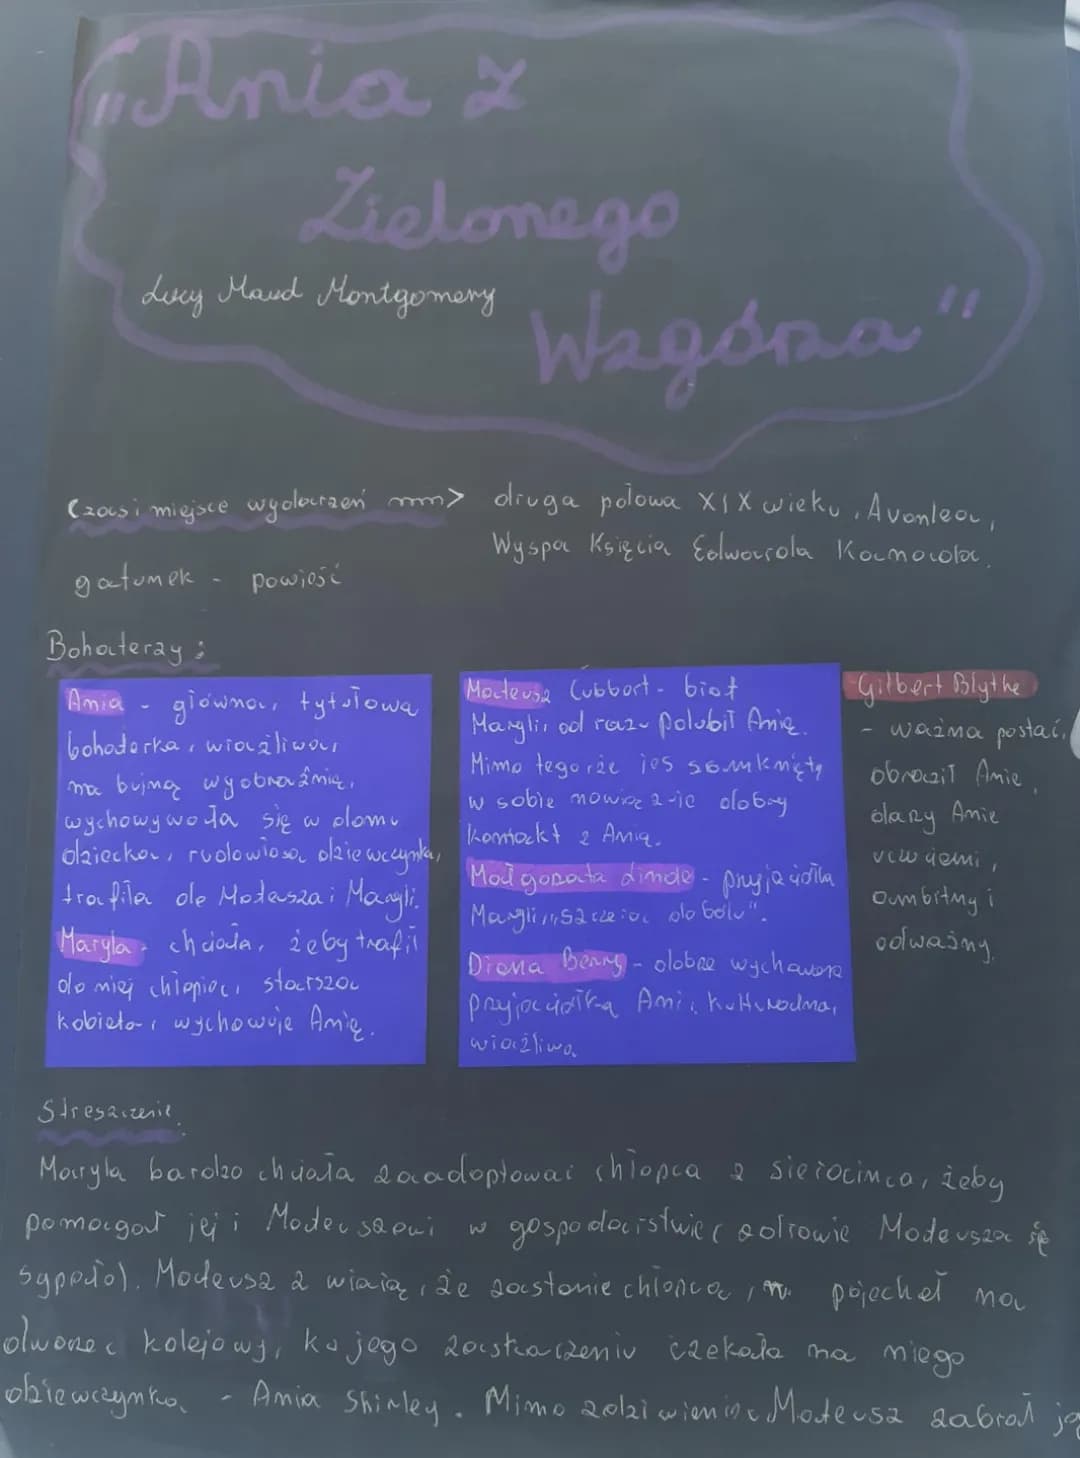 "Ania z
Zielonego
Wzgórza"
Lucy Maud Montgomery
Czas i miejsce wydarzeń
druga połowa XIX wieku, Avonlea,
Wyspa Księcia Edwarda Kanada.
gatunek - powieść
Bohaterzy:
Ania - główna, tytułowa
bohaterka, wrażliwa,
ma bujną wyobraźnię,
wychowywała się w domu
dziecka, rudowłosa dziewczynka,
trafiła do Mateusza i Maryli.
Maryla - chciała, żeby trafił
do niej chłopiec, starsza
kobieta, wychowuje Anię.
Mateusz Cubbert - brat
Maryli, od razu polubił Anię.
Mimo tego że jes zamknięty
w sobie nawiązuje dobry
kontakt z Anią.
Małgorzata Linde - przyjaciółka
Maryli, "szczera do bólu".
Diana Berry - dobrze wychowana
przyjaciółka Ani, kulturalna,
wrażliwa.
Gilbert Blythe
- ważna postać,
obraził Anię,
darzy Anię
uczuciami,
ambitny i
odważny.
Streszczenie.
Maryla bardzo chciała zaadoptować chłopca z sierocińca, żeby
pomagał jej i Mateuszowi w gospodarstwie (zdrowie Mateusza się
sypało). Mateusz z wiarą, że zastanie chłopca, pojechał na
dworzec kolejowy, ku jego zaskoczeniu czekała na niego
dziewczynka - Ania Shirley. Mimo zdziwienia Mateusz zabrał ją